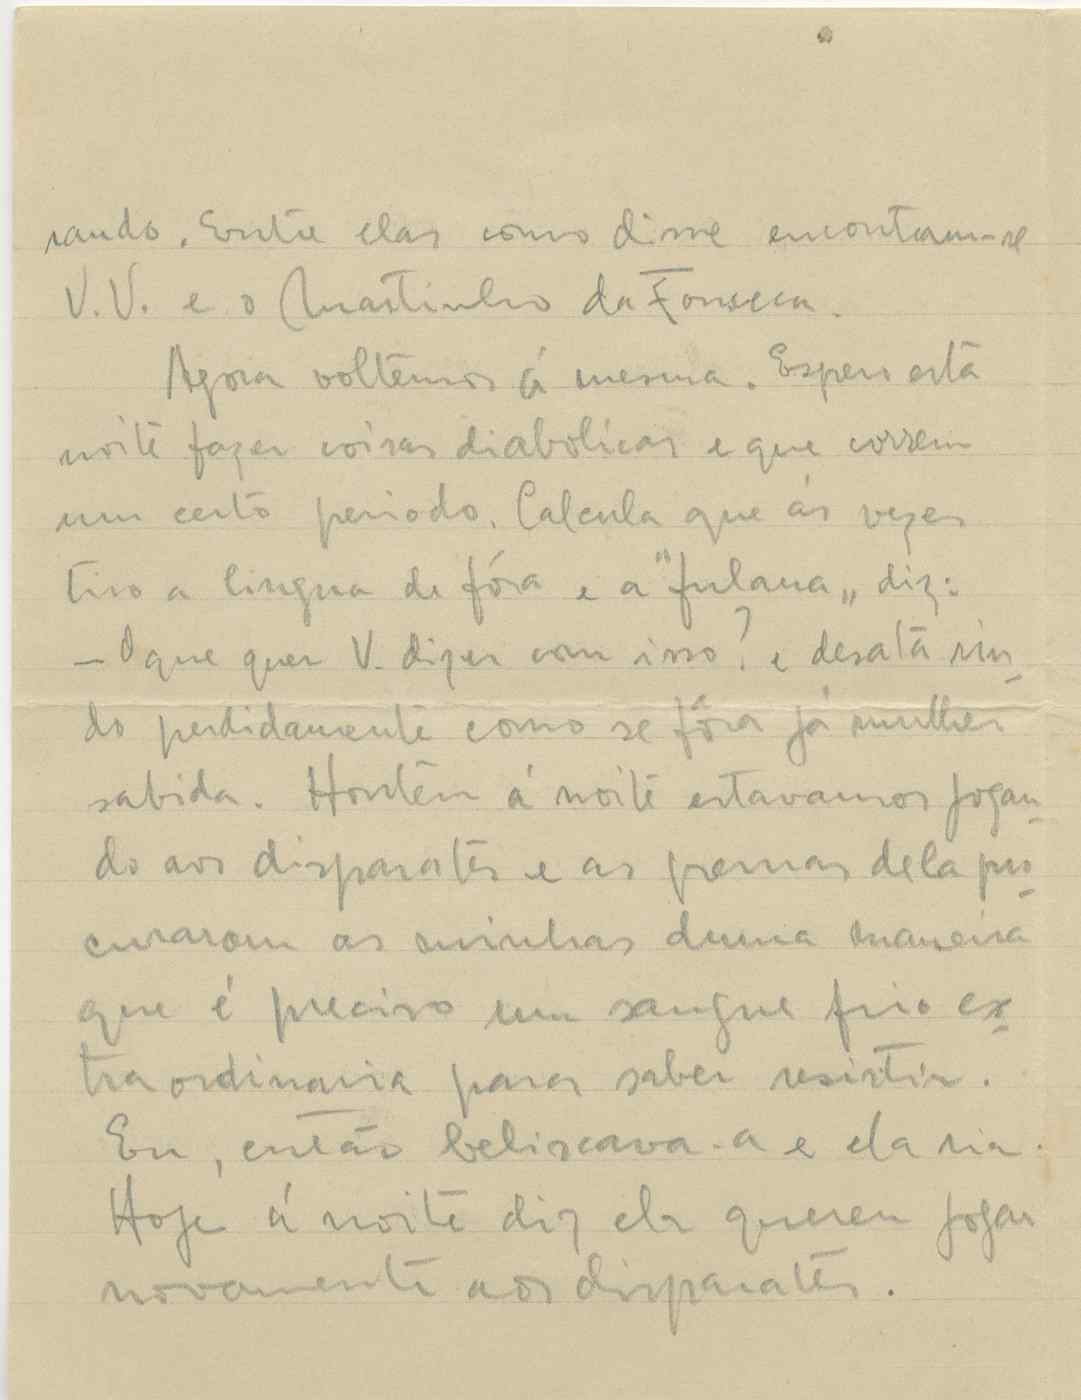 rando. Entre elas como disse encontram-se
V.V. e o Martinho da Fonseca.
Agora voltemos á mesma. Espero esta
noite fazer coisas diabolicas e que correm
um certo periodo. Calcula que ás vezes
tiro a lingua de fóra e a "fulana„ diz:
– O que quer V. dizer com isso? e desata rin-
do perdidamente como se fôra já mulher
sabida. Hontem á noite estavamos jogan-
do aos disparates e as pernas dela pro-
curaram as minhas duma maneira
que é preciso um sangue frio ex-
traordinaria para saber resistir.
Eu, então beliscava-a e ela ria.
Hoje á noite diz ela querer jogar
novamente aos disparates.